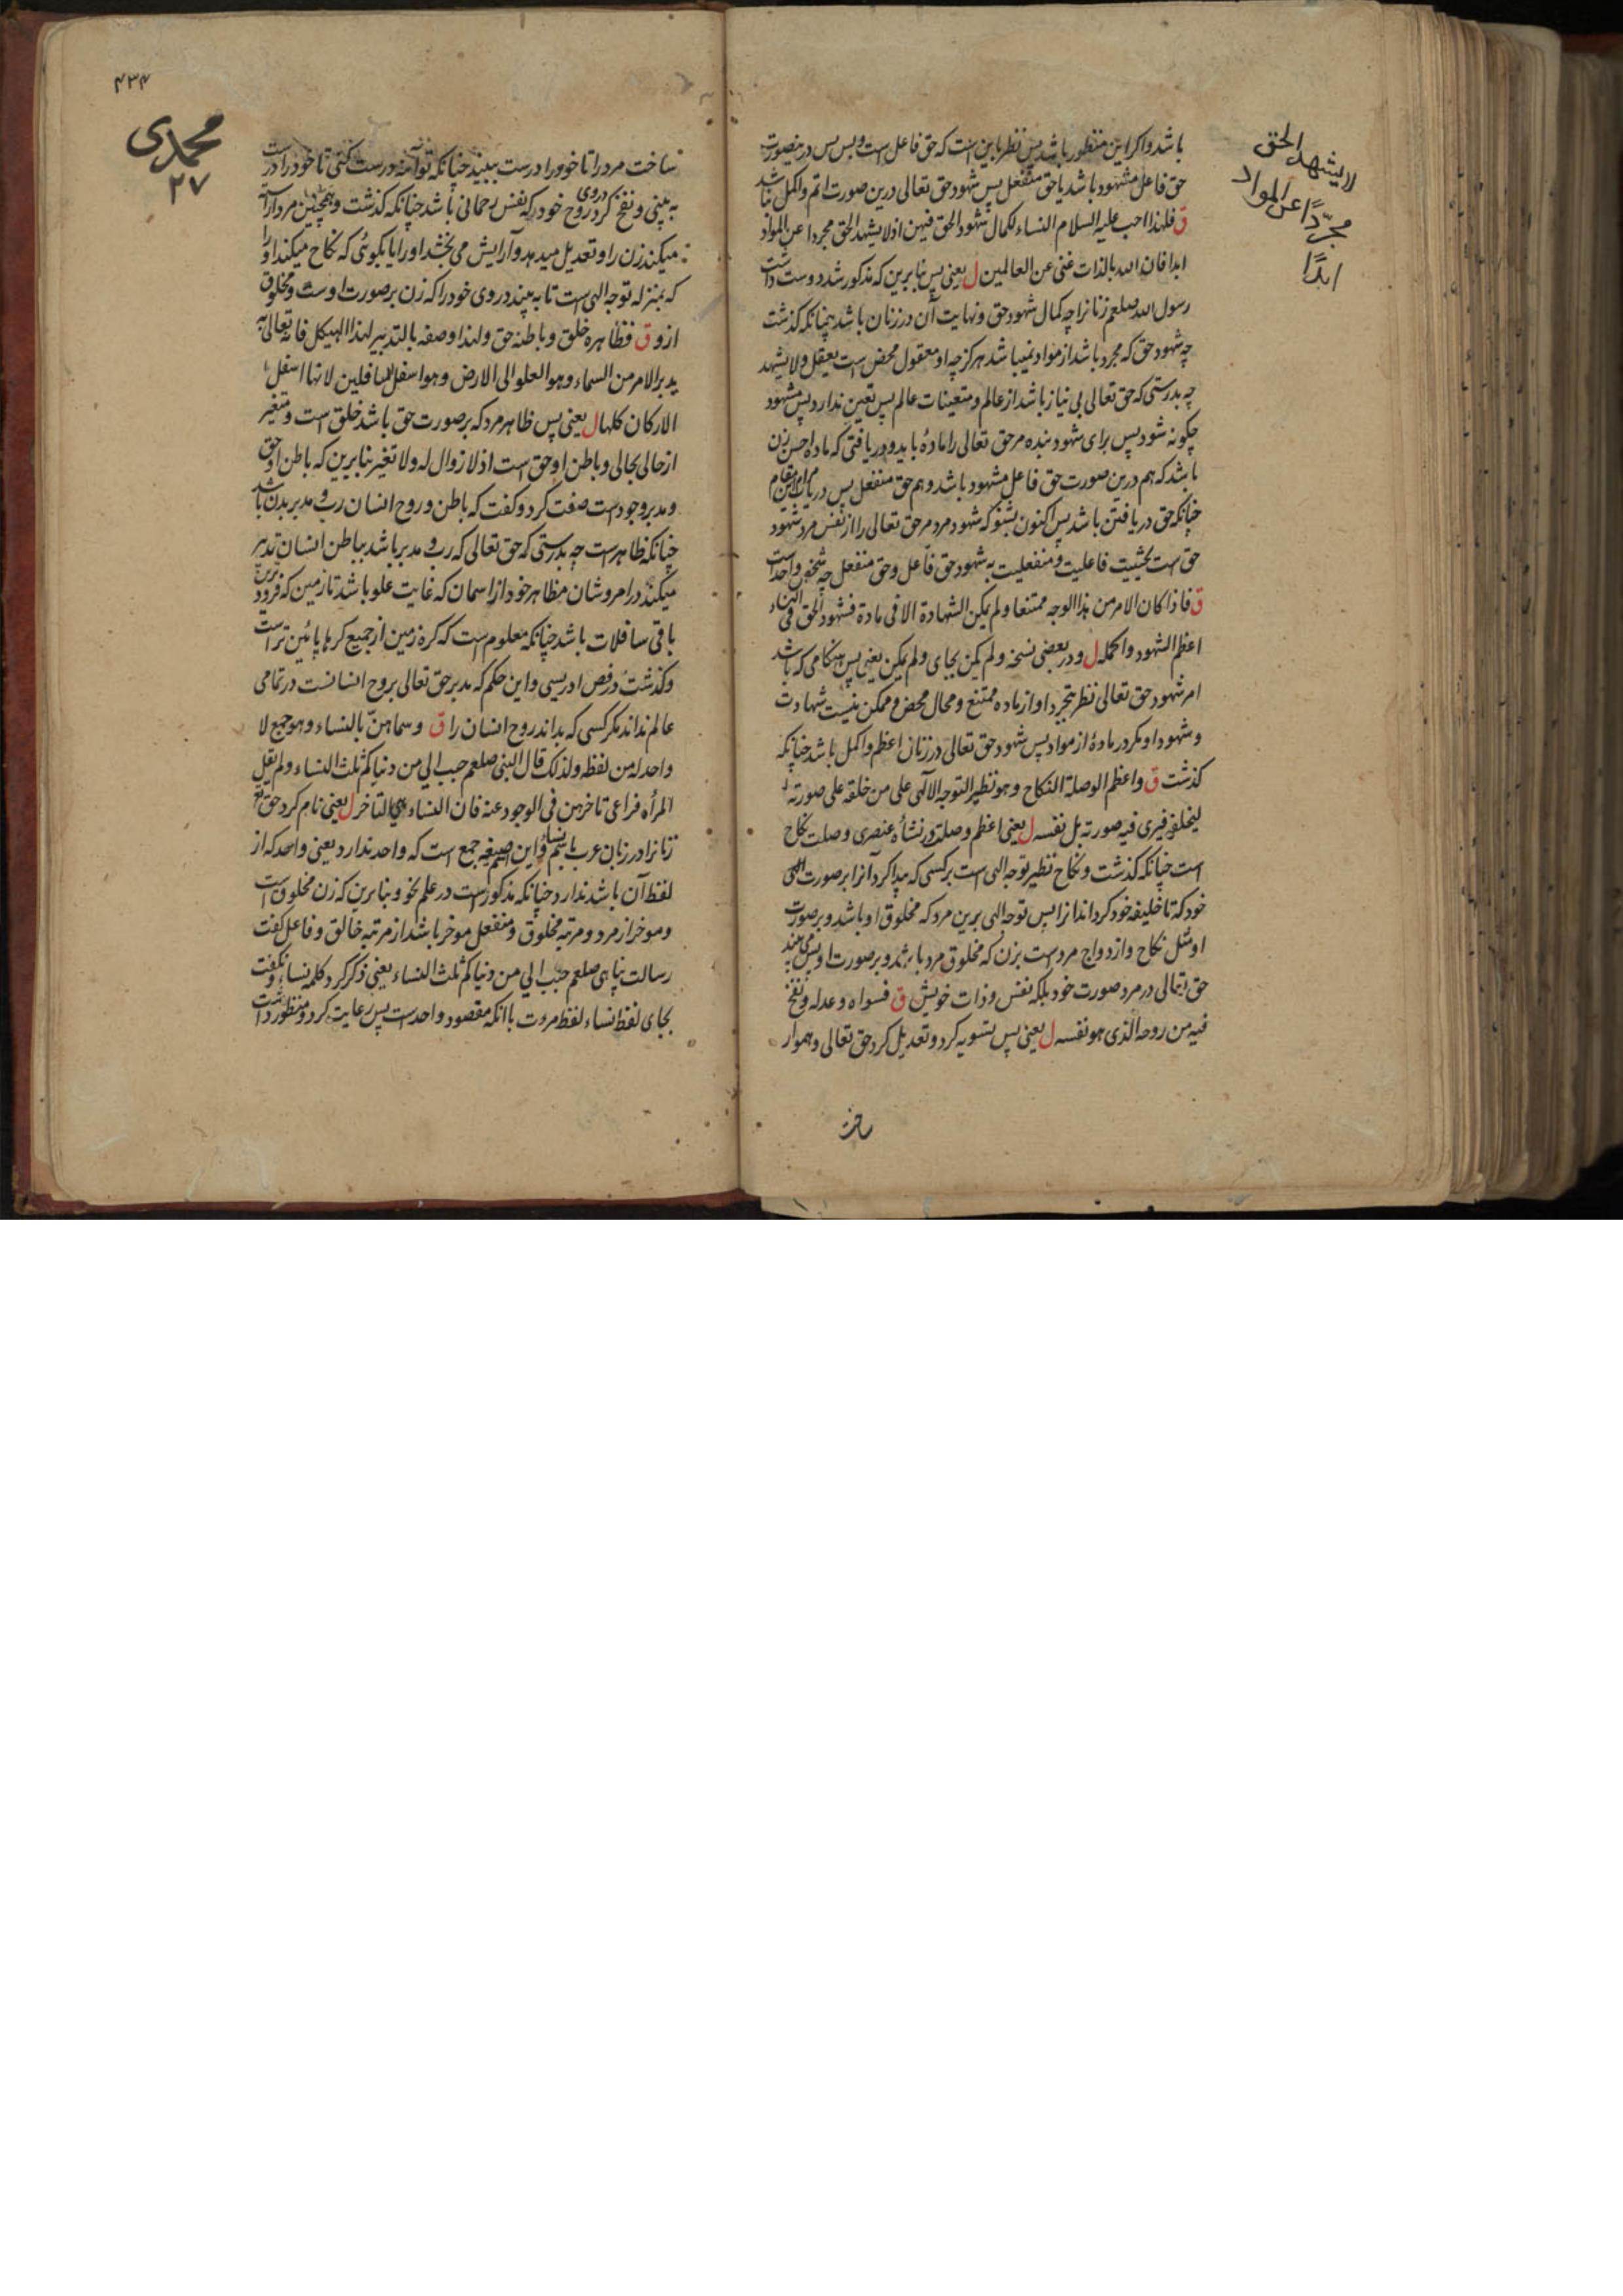 باشد و اکر این منظور باشد پس نظر باین است که حق فاعل است و بس پس درینصورت
حق فاعل مشهود باشد یا حق منفعل پس شهود حق تعالی درین صورت اتم و اکمل باشد
ق فلهذا احب علیه السلام النساء لکمال شهود الحق فیهن اذ لا یشهد الحق مجردا عن المواد
ابدا فان الله بالذات غنی عن العالمین ل یعنی پس بنابرین که مذکور شد دوست داشت
رسول الله صلعم زنانرا چه کمال شهود حق و نهایت آن در زنان باشد چنانکه کذشت
چه شهود حق که مجرد باشد از مواد نمیباشد هرکز چه او معقول محض است یعقل و لا یشهد
چه بدرستی که حق تعالی بی نیاز باشد از عالم و متعینات عالم پس تعین ندارد پس مشهود
چکونه شود پس برای شهود بنده مر حق تعالی را مادهٔ باید و دریافتی که ماده احسن زن
باشد که هم درین صورت حق فاعل مشهود باشد و هم حق منفعل پس دریاب این مقام
چنانکه حق دریافتن باشد پس اکنون بشنو که شهود مرد مر حق تعالی را از نفس مرد شهود
حق است بحیثیت فاعلیت و منفعلیت به شهود حق فاعل و حق منفعل چه شخص واحد است
ق فاذا کان الامر من هذا الوجه ممتنعا و لم یکن الشهادة الا فی مادة فشهود الحق فی النساء
اعظم الشهود و اکمله ل و در بعضی نسخه و لم یکن بجای و لم یکن یعنی پس هنکامی که باشد
امر شهود حق تعالی نظر بتجرد او از ماده ممتنع و محال محض و ممکن نیست شهادت
و شهود او مکر در مادهٔ از مواد پس شهود حق تعالی در زنان اعظم و اکمل باشد چنانکه
کذشت ق و اعظم الوصلة النکاح و هو نظیر التوجه الالهی علی من خلقه علی صورته
لیخلفه فیری فیه صورته بل نفسه ل یعنی اعظم وصلت در نشأه عنصری وصلت نکاح
است چنانکه کذشت و نکاح نظیر توجه الهی است بر کسی که پیدا کرد آنرا بر صورت الهی
خود که تا خلیفه خود کرداند آنرا پس توجه الهی برین مرد که مخلوق او باشد و بر صورت
او مثل نکاح و ازدواج مرد است بزن که مخلوق مرد باشد و بر صورت او پس می بیند
حق تعالی در مرد صورت خود بلکه نفس و ذات خویش ق فسواه و عدله و نفخ
فیه من روحه الذی هو نفسه ل یعنی پس تسویه کرد و تعدیل کرد حق تعالی و هموار
ساخت
لا یشهد الحق
مجرّدًا عن المواد
ابدًا
۴۳۴
محمدی
۲۷
ساخت مرد را تا خود را درست ببیند چنانکه تو آئینه درست کنی تا خود را درست
به بینی و نفخ کرد در وی روح خود را که نفس رحمانی باشد چنانکه کذشت و همچنین مرد آراسته
میکند زن را و تعدیل میدهد و آرایش می بخشد او را یا بکوئی که نکاح میکند او را
که بمنزله توجه الهی است تا به بیند در وی خود را که زن بر صورت اوست و مخلوق
ازو ق فظاهره خلق و باطنه حق و لهذا وصفه بالتدبیر لهذا الهیکل فانه تعالی به
یدبر الامر من السماء و هو العلو الی الارض و هو اسفل السافلین لانها اسفل
الارکان کلها ل یعنی پس ظاهر مرد که بر صورت حق باشد خلق است و متغیر
از حالی بحالی و باطن او حق است اذ لا زوال له و لا تغیر بنابرین که باطن او حق
و مدبر وجود است صفت کرد و کفت که باطن و روح انسان رب و مدبر بدن باشد
چنانکه ظاهرست چه بدرستی که حق تعالی که رب و مدبر باشد بباطن انسان تدبیر
میکند در امر و شان مظاهر خود از اسمان که غایت علو باشد تا زمین که فرودترین
باقی سافلات باشد چنانکه معلوم است که کره زمین از جمیع کرها پائین تر است
و کذشت در فص ادریسی و این حکم که مدبر حق تعالی بروح انسانست در تمامی
عالم نداند مکر کسی که بداند روح انسان را ق و سماهنّ بالنساء و هو جمع لا
واحد له من لفظه و لذلک قال النبی صلعم حبب الی من دنیاکم ثلث النساء و لم یقل
المرأه فراعی تاخرهن فی الوجود عنه فان النساء هی التاخر ل یعنی نام کرد حق تع
زنانرا در زبان عرب باسم نساء و این صیغه جمع است که واحد ندارد یعنی واحد که از
لفظ آن باشد ندارد چنانکه مذکورست در علم نحو و بنابرین که زن مخلوق است
و موخر از مرد و مرتبه مخلوق و منفعل موخر باشد از مرتبه خالق و فاعل کفت
رسالت پناهی صلعم حبب الی من دنیاکم ثلث النساء یعنی ذکر کرد کلمه نساء و نکفت
بجای لفظ نساء لفظ مرءت با انکه مقصود واحد است پس رعایت کرد و منظور داشت